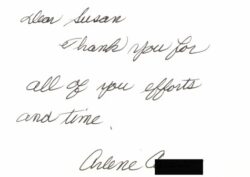 Dear Susan
Thank you for
all of you efforts
and time.
Arlene